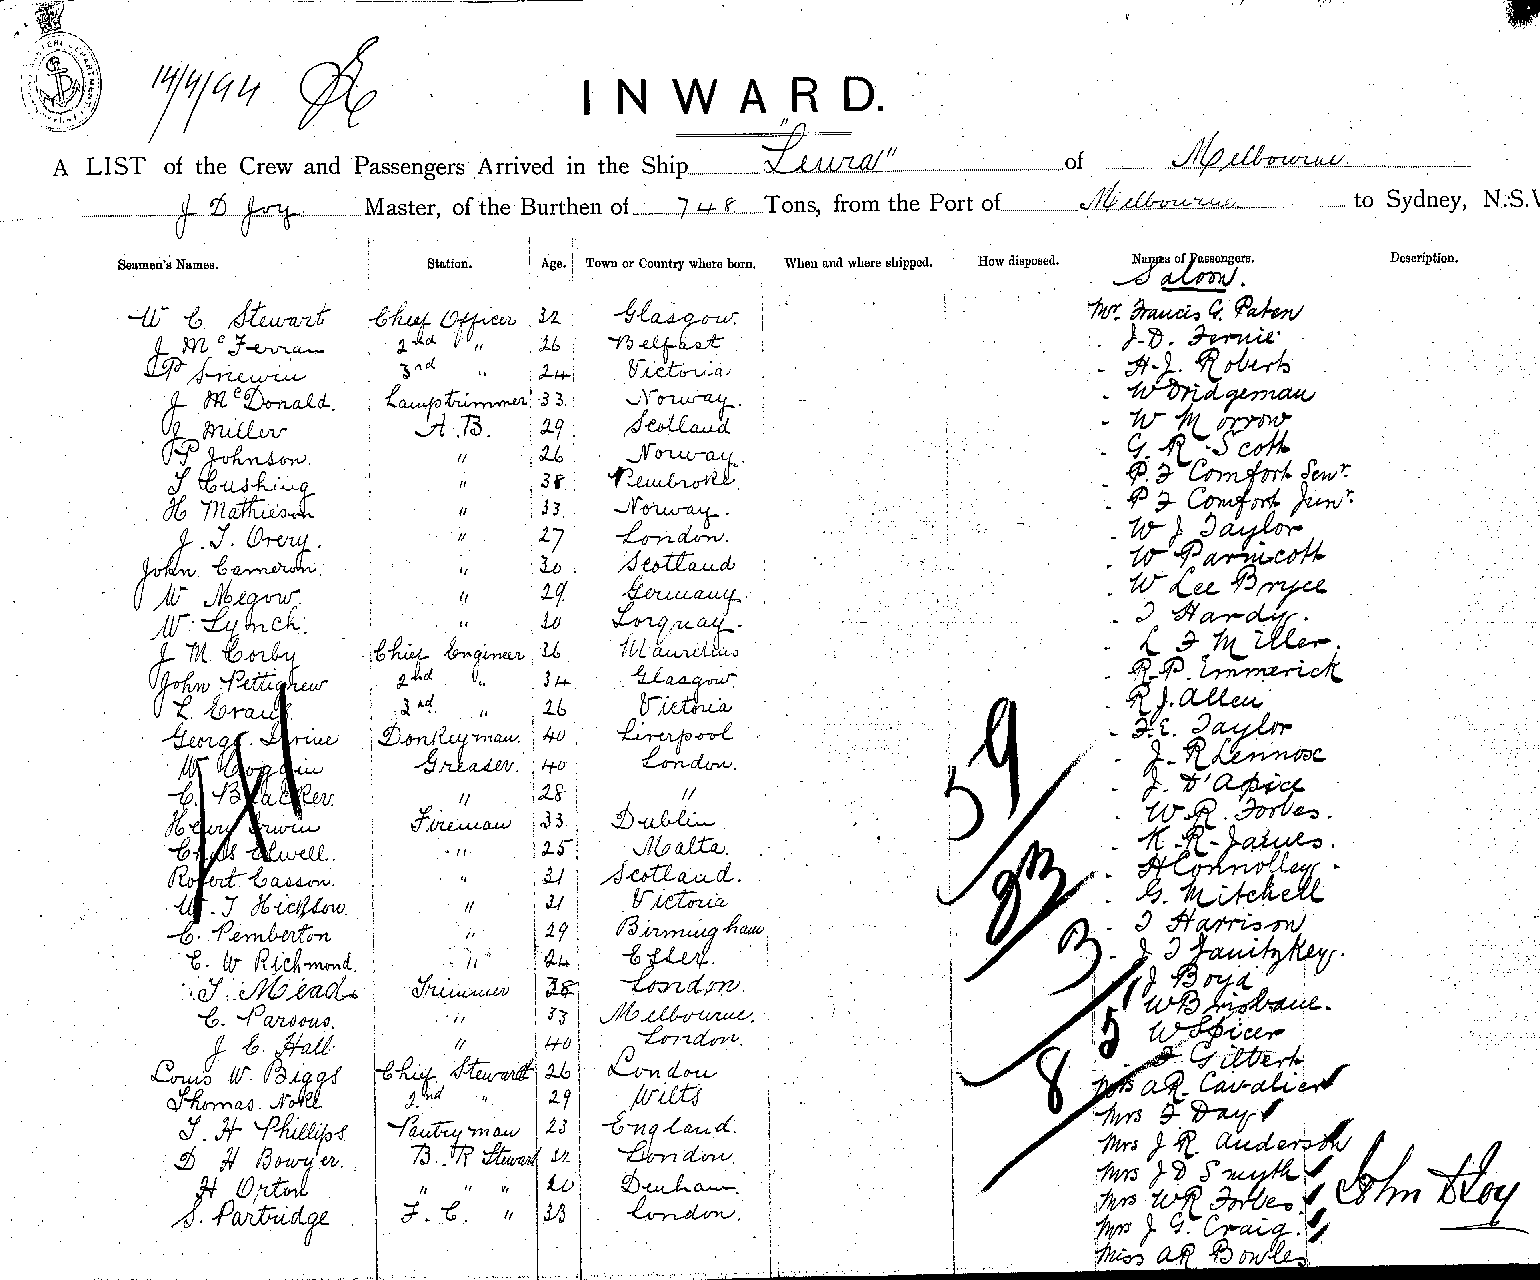 14/4/94
INWARD.
A LIST of the Crew and Passengers Arrived in the Ship "Leura" of Melbourne
J D Joy Master, of the Burthen of 748 Tons, from the Port of Melbourne to Sydney, N.S.W
Seamen's Names. Station. Age. Town or Country where born. When and where shipped. How disposed. Names of Passengers. Description.
Saloon.
W C Stewart Chief Officer 32 Glasgow. Mr. Francis G. Paten
J McFerran 2nd " 26 Belfast J. D. Fernie
3rd " 24 Victoria H. J. Roberts
J McDonald. Lamptrimmer 33 Norway. W Bridgeman
J Miller A.B. 29 Scotland W Morrow
P Johnson. " 26 Norway. G. R. Scott
T Cushing " 38 Pembroke. P. F Comfort Senr.
H Mathieson " 33 Norway. P F Comfort Junr.
J. T. Overy. " 27 London. W J Taylor
John Cameron. " 30 Scotland W Parnicott
W Megow. " 29 Germany. W Lee Bryce
W. Lynch. " 30 Torquay. T Hardy.
J M Corby Chief Engineer 36 Mauritius L F Miller.
John Pettigrew 2nd " 34 Glasgow R. P. Emmerick
L Craul 3rd " 26 Victoria R J. Allen
George Irvine Donkeyman. 40 Liverpool F. E. Taylor
W Coggin Greaser. 40 London. J. R Lennox
C. Blacker. " 28 " J. D'Apice
Henry Irwin Fireman 33 Dublin W. R. Forbes.
Chas Elwell. " 25 Malta. K. R. James.
Robert Casson. " 31 Scotland. H Connolley.
W. T Hickson. " 31 Victoria G. Mitchell
C. Pemberton " 29 Birmingham T Harrison
C. W Richmond. " 24 Essex. J T Janitzkey.
T. Mead. Trimmer 38 London. J Boyd
C. Parsons. " 33 Melbourne. W Brisbane.
J C. Hall. " 40 London. W Spicer
Louis W. Biggs Chief Steward 26 London F Gilbert
Thomas Noke 2nd " 29 Wilts Mrs A R. Cavalier
T. H Phillips. Pantryman 23 England. Mrs F Day
D H Bowyer. B. R Steward 32 London. Mrs J R. Anderson
H Orton " " " 20 Denham. Mrs J D Smyth
S. Partridge F. C. " 33 London. Mrs W R Forbes.
Mrs J G. Craig.
Miss A R Bowles
59
33
3
5
8
John D Joy